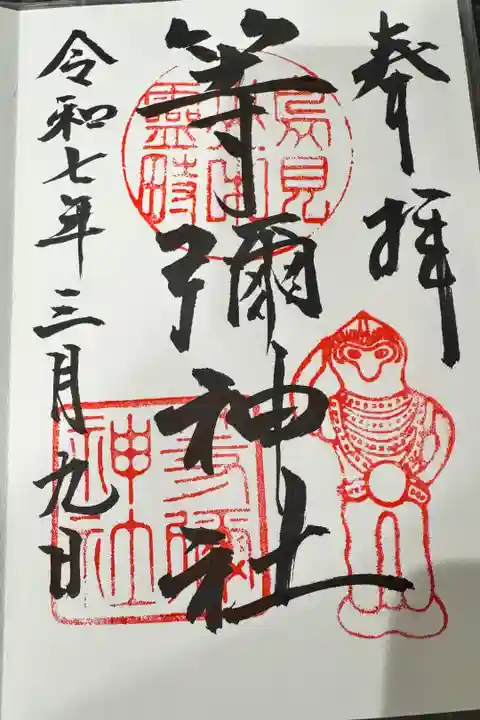 奉拝
等彌神社
令和七年三月九日
鳥見山中霊畤
等彌神社